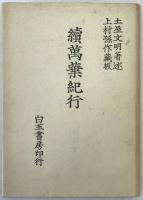 土屋文明著述
上村孫作蔵板
續萬葉紀行
白玉書房印行